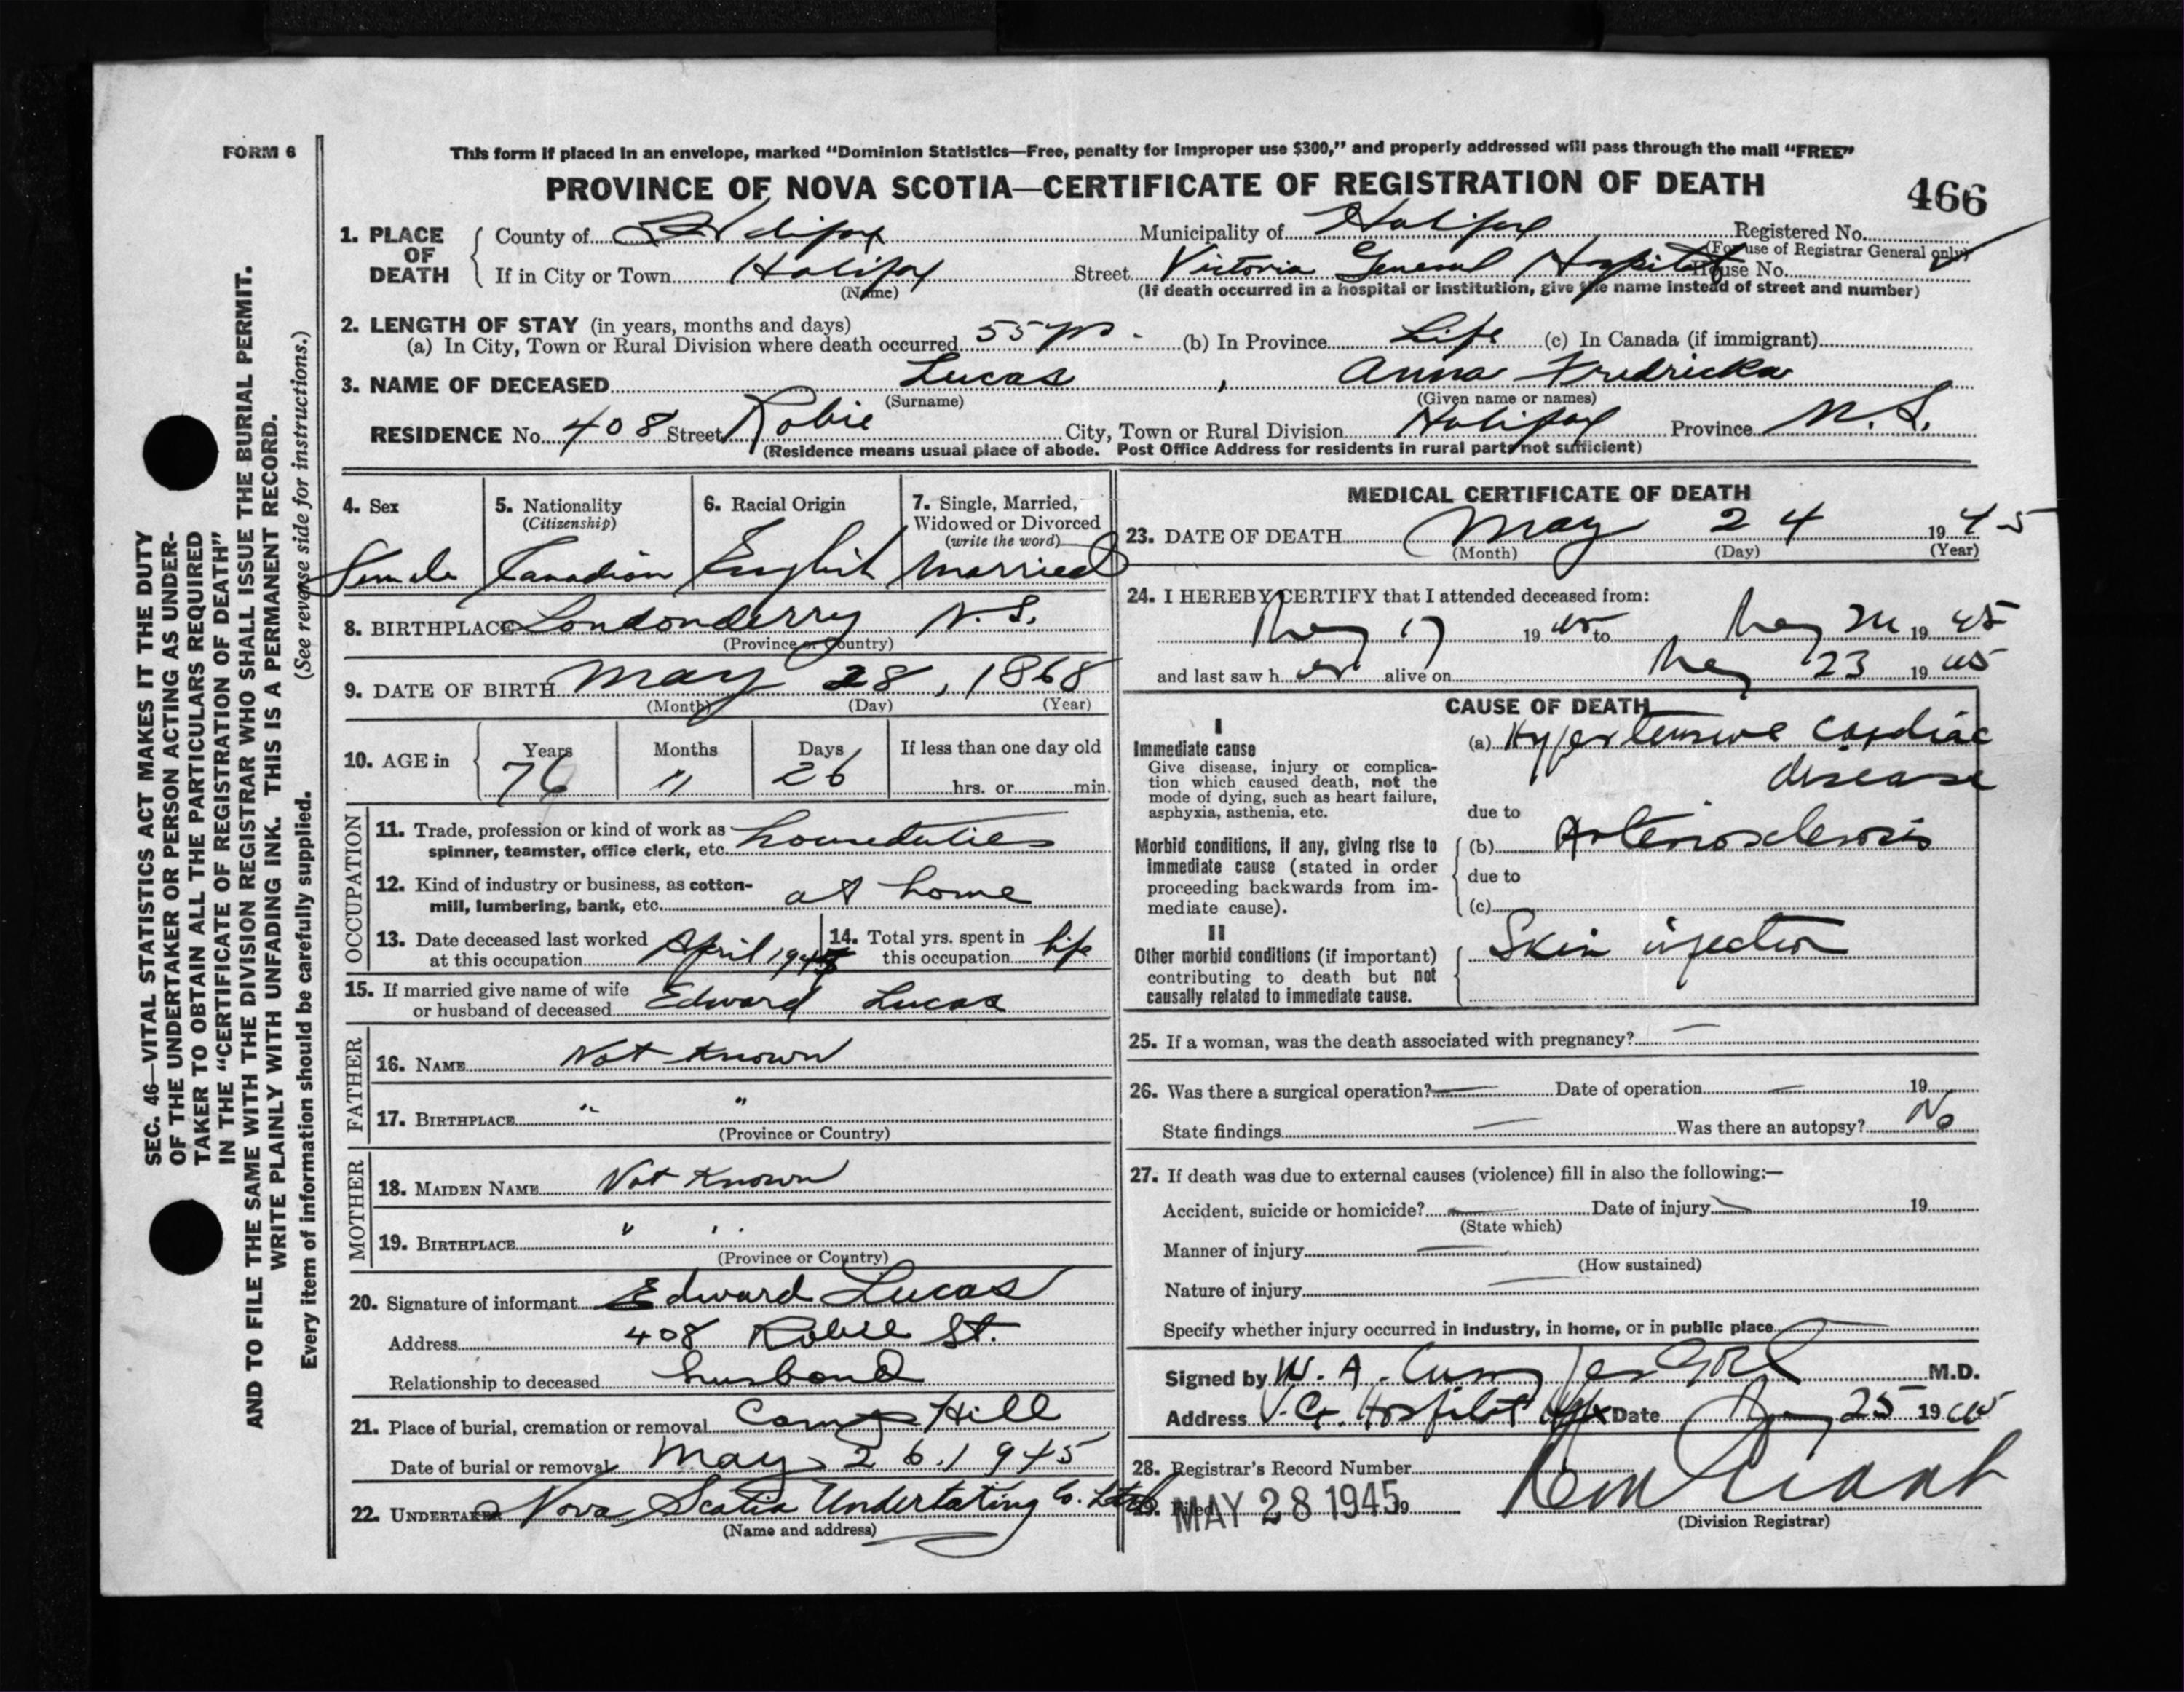 FORM 6
This form if placed in an envelope, marked “Dominion Statistics—Free, penalty for improper use $300,” and properly addressed will pass through the mail “FREE”
PROVINCE OF NOVA SCOTIA—CERTIFICATE OF REGISTRATION OF DEATH
466
1. PLACE OF DEATH
County of Halifax Municipality of Halifax Registered No.
(For use of Registrar General only)
If in City or Town Halifax Street Victoria General Hospital House No.
(Name) (If death occurred in a hospital or institution, give the name instead of street and number)
2. LENGTH OF STAY (in years, months and days)
(a) In City, Town or Rural Division where death occurred 55 yrs. (b) In Province Life (c) In Canada (if immigrant)
3. NAME OF DECEASED Lucas, Anna Fredricka
(Surname) (Given name or names)
RESIDENCE No. 408 Street Robie City, Town or Rural Division Halifax Province N.S.
(Residence means usual place of abode. Post Office Address for residents in rural parts not sufficient)
4. Sex
Female
5. Nationality
(Citizenship)
Canadian
6. Racial Origin
English
7. Single, Married,
Widowed or Divorced
(write the word)
Married
8. BIRTHPLACE Londonderry N.S.
(Province or Country)
9. DATE OF BIRTH May 28, 1868
(Month) (Day) (Year)
10. AGE in
Years Months Days If less than one day old
76 11 26 hrs. or min.
OCCUPATION
11. Trade, profession or kind of work as
spinner, teamster, office clerk, etc. houseduties
12. Kind of industry or business, as cotton-
mill, lumbering, bank, etc. at home
13. Date deceased last worked
at this occupation April 1945
14. Total yrs. spent in
this occupation life
15. If married give name of wife
or husband of deceased Edward Lucas
FATHER
16. NAME Not Known
17. BIRTHPLACE " "
(Province or Country)
MOTHER
18. MAIDEN NAME Not Known
19. BIRTHPLACE " "
(Province or Country)
20. Signature of informant Edward Lucas
Address 408 Robie St.
Relationship to deceased husband
21. Place of burial, cremation or removal Camp Hill
Date of burial or removal May 26, 1945
22. UNDERTAKER Nova Scotia Undertaking Co. Ltd
(Name and address)
MEDICAL CERTIFICATE OF DEATH
23. DATE OF DEATH May 24 1945
(Month) (Day) (Year)
24. I HEREBY CERTIFY that I attended deceased from:
May 17 1945 to May 24 1945
and last saw her alive on May 23 1945
CAUSE OF DEATH
I
Immediate cause
Give disease, injury or complica-
tion which caused death, not the
mode of dying, such as heart failure,
asphyxia, asthenia, etc.
(a) Hypertensive cardiac
disease
due to
Morbid conditions, if any, giving rise to
immediate cause (stated in order
proceeding backwards from im-
mediate cause).
(b) Arteriosclerosis
due to
(c)
II
Other morbid conditions (if important)
contributing to death but not
causally related to immediate cause.
Skin infection
25. If a woman, was the death associated with pregnancy? —
26. Was there a surgical operation? — Date of operation — 19
State findings — Was there an autopsy? No
27. If death was due to external causes (violence) fill in also the following:—
Accident, suicide or homicide? — Date of injury — 19
(State which)
Manner of injury —
(How sustained)
Nature of injury —
Specify whether injury occurred in industry, in home, or in public place —
Signed by W. A. M.D.
Address V. G. Hospital Hfx Date May 25 1945
28. Registrar's Record Number
29. Filed MAY 28 1945 19
(Division Registrar)
SEC. 46—VITAL STATISTICS ACT MAKES IT THE DUTY
OF THE UNDERTAKER OR PERSON ACTING AS UNDER-
TAKER TO OBTAIN ALL THE PARTICULARS REQUIRED
IN THE “CERTIFICATE OF REGISTRATION OF DEATH”
AND TO FILE THE SAME WITH THE DIVISION REGISTRAR WHO SHALL ISSUE THE BURIAL PERMIT.
WRITE PLAINLY WITH UNFADING INK. THIS IS A PERMANENT RECORD.
Every item of information should be carefully supplied. (See reverse side for instructions.)